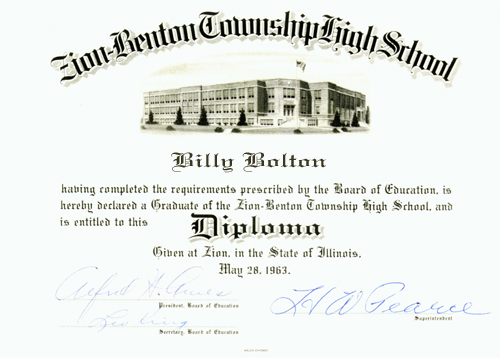 Zion-Benton Township High School
Billy Bolton
having completed the requirements prescribed by the Board of Education, is
hereby declared a Graduate of the Zion-Benton Township High School, and
is entitled to this Diploma
Given at Zion, in the State of Illinois,
May 28, 1963.
Alfred H. Ames
President, Board of Education
H W Pearce
Superintendent
Secretary, Board of Education